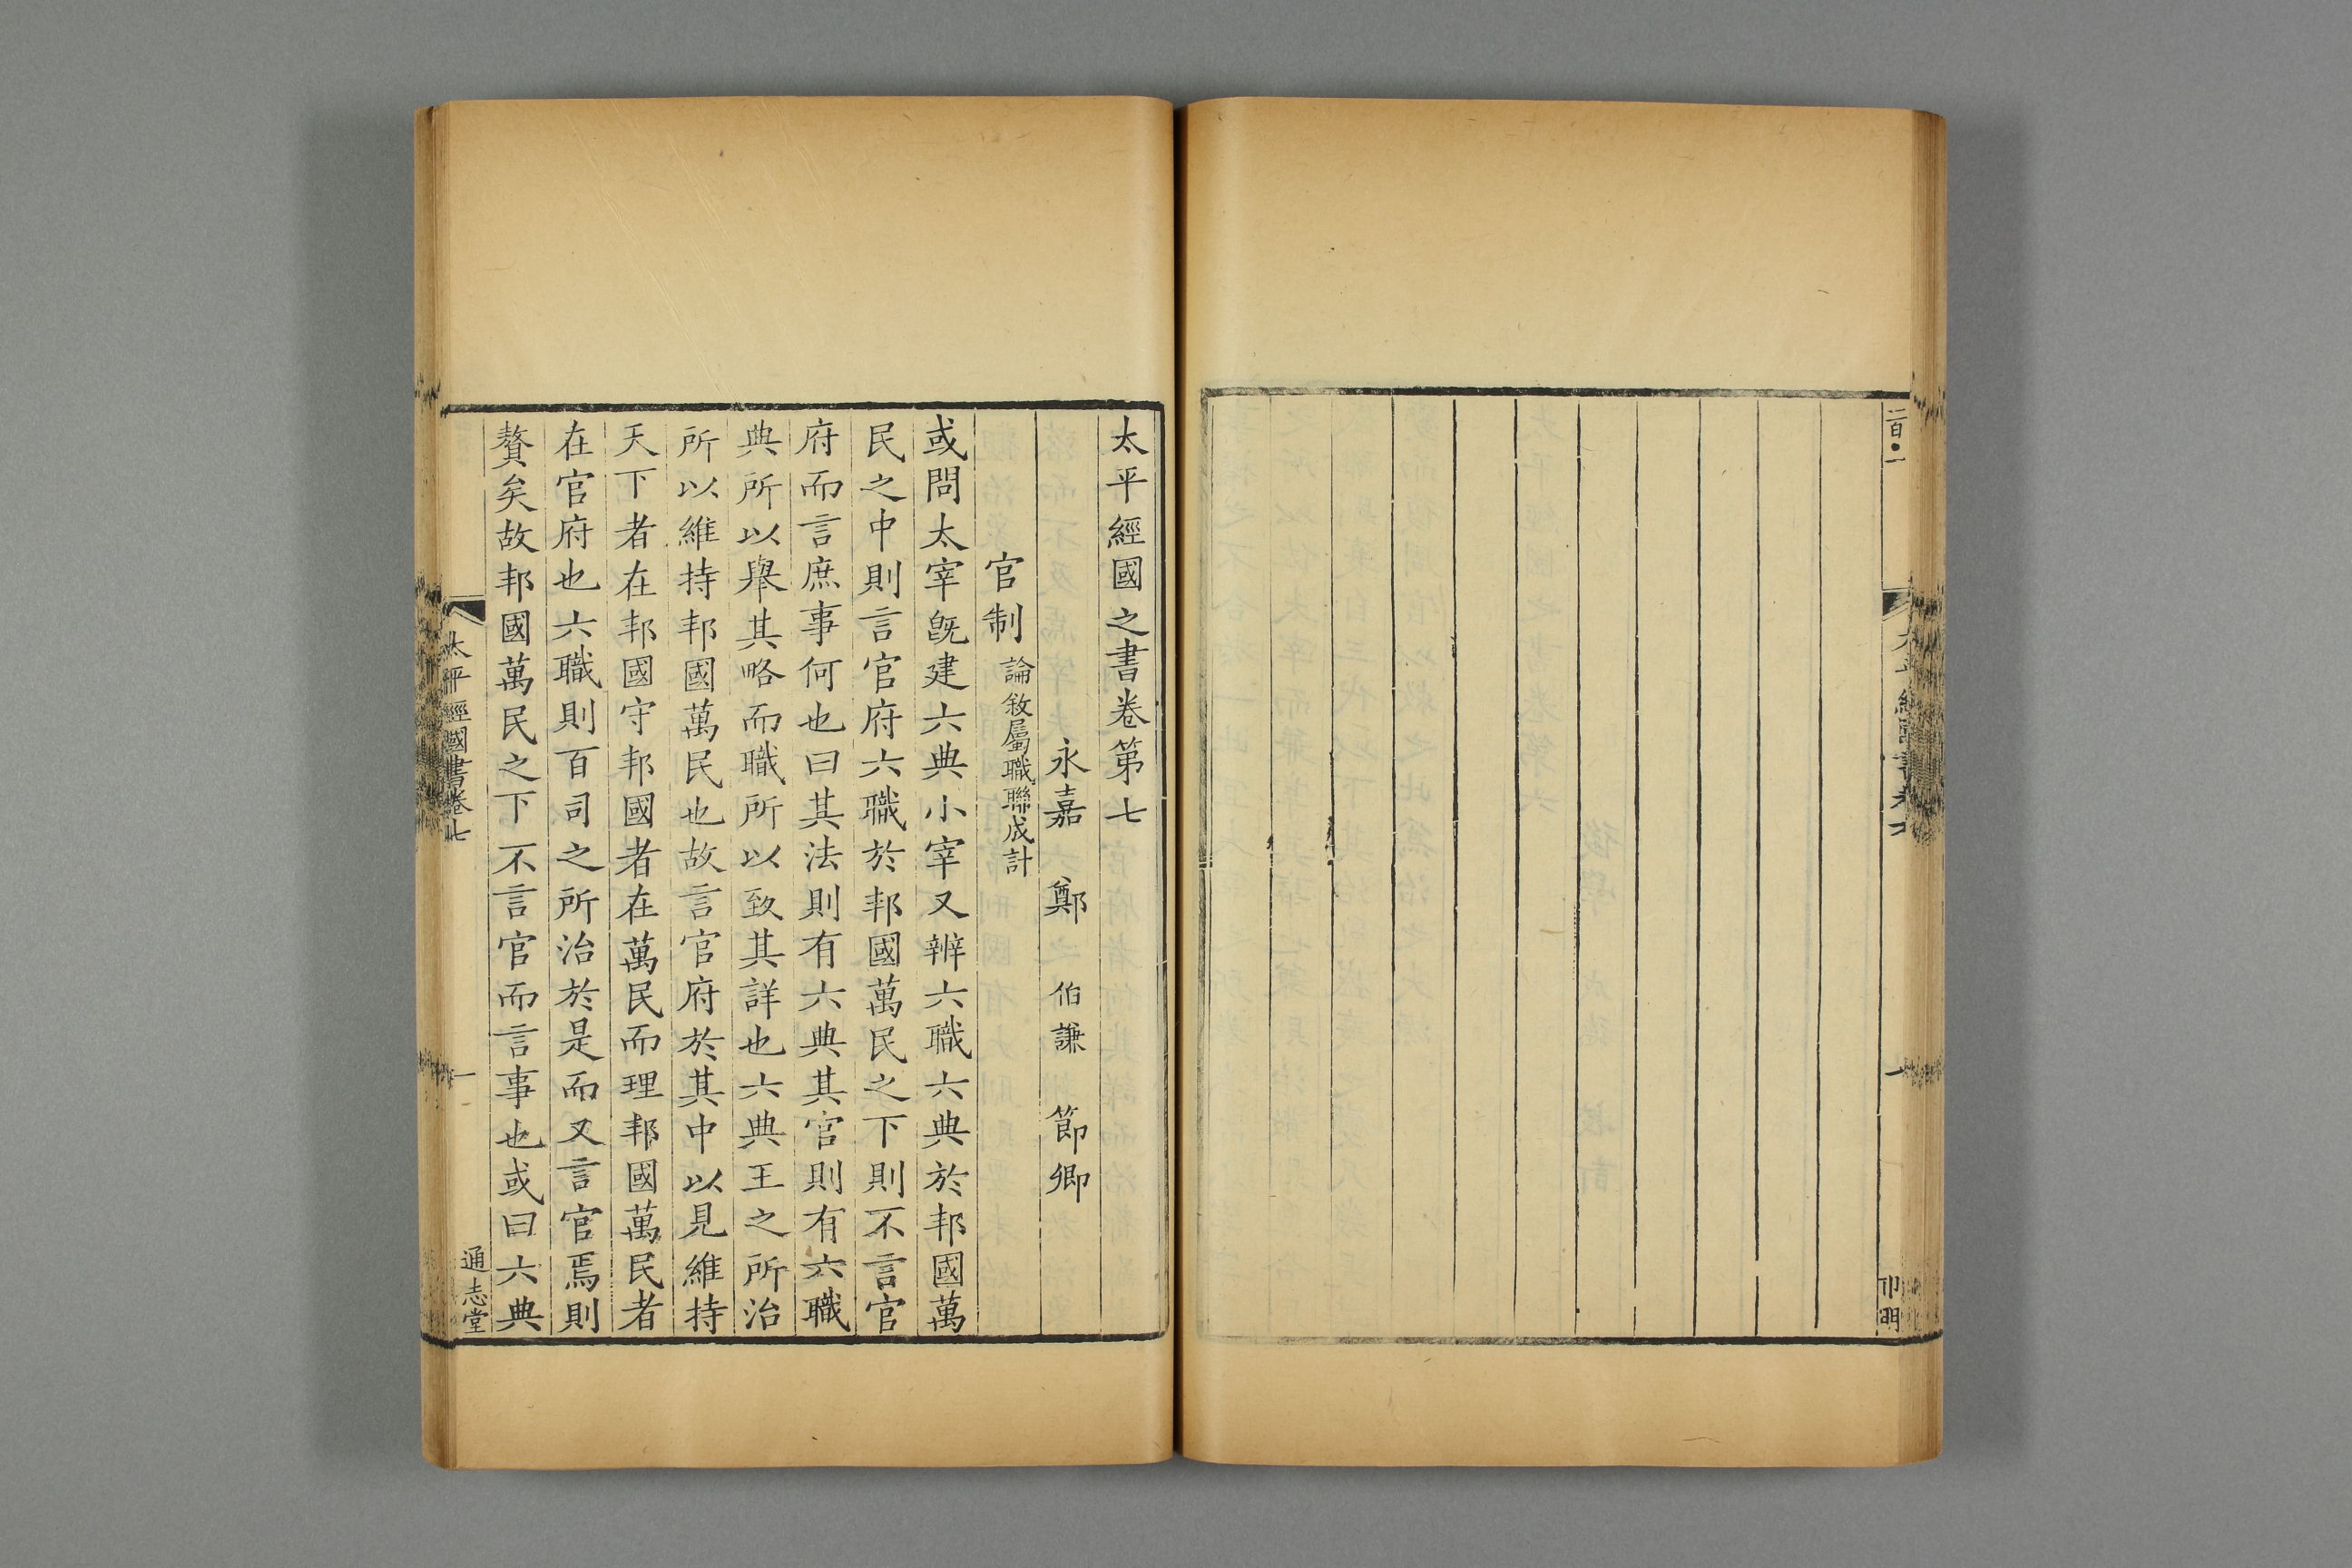 二百●一
太平經國書卷六
一
卬明
太平經國之書卷第七
永嘉 鄭 伯謙 節卿
官制 論敘屬職聯成計
或問太宰旣建六典小宰又辨六職六典於邦國萬
民之中則言官府六職於邦國萬民之下則不言官
府而言庶事何也曰其法則有六典其官則有六職
典所以舉其略而職所以致其詳也六典王之所治
所以維持邦國萬民也故言官府於其中以見維持
天下者在邦國守邦國者在萬民而理邦國萬民者
在官府也六職則百司之所治於是而又言官焉則
贅矣故邦國萬民之下不言官而言事也或曰六典
太平經國書卷七
一
通志堂